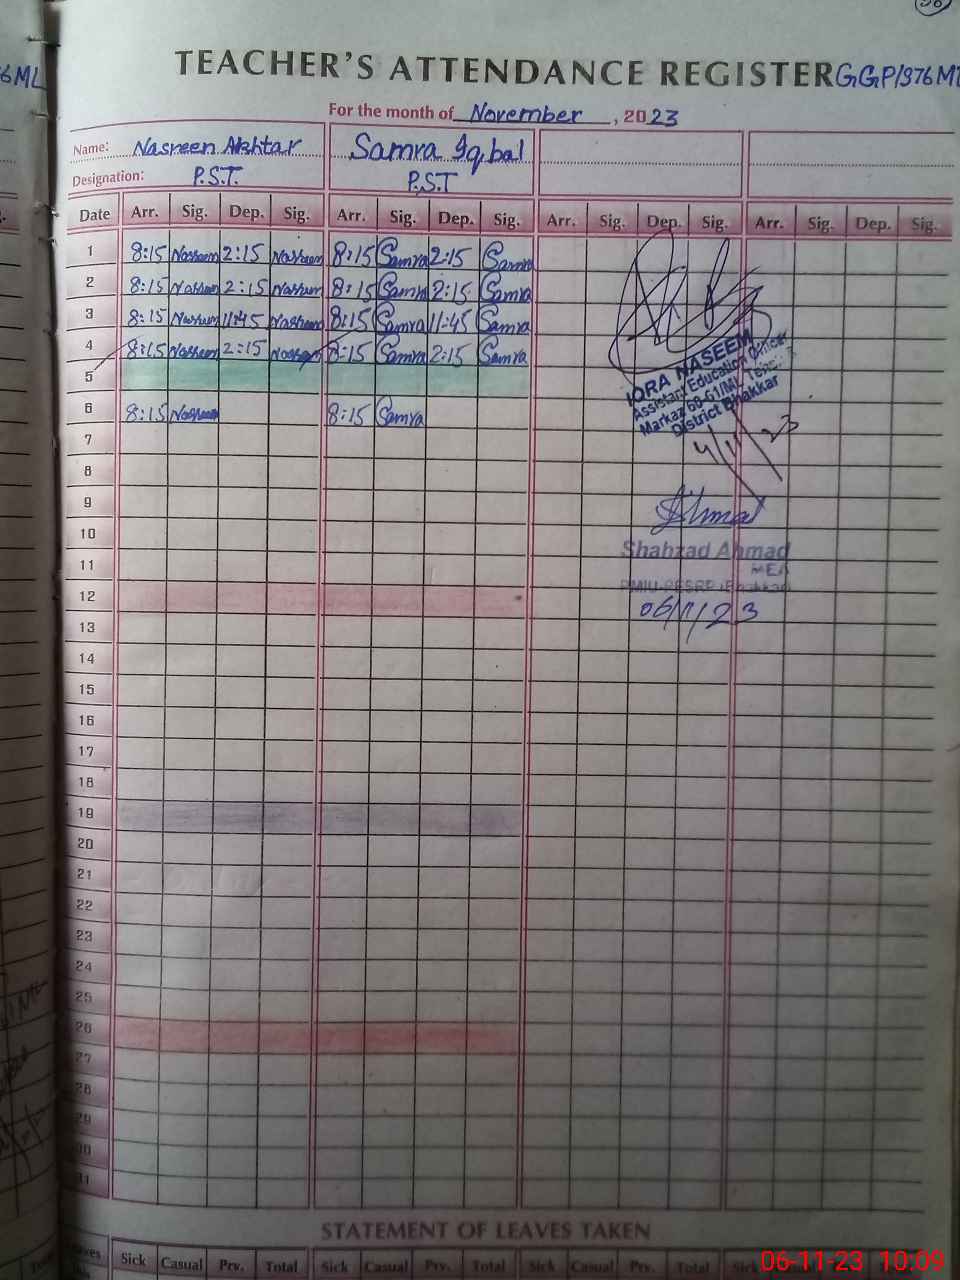 38
TEACHER'S ATTENDANCE REGISTER GGP/376ML
6ML
For the month of November, 2023
Name: Nasreen Akhtar Samra Iqbal
Designation: P.S.T. P.S.T
Date Arr. Sig. Dep. Sig. Arr. Sig. Dep. Sig. Arr. Sig. Dep. Sig. Arr. Sig. Dep. Sig.
1 8:15 Nasreen 2:15 Nasreen 8:15 Samra 2:15 Samra
2 8:15 Nasreen 2:15 Nasreen 8:15 Samra 2:15 Samra
3 8:15 Nasreen 11:45 Nasreen 8:15 Samra 11:45 Samra
4 8:15 Nasreen 2:15 Nasreen 8:15 Samra 2:15 Samra
5
6 8:15 Nasreen 8:15 Samra
IQRA NASEEM
Assistant Education Officer
Markaz 60-61/ML
District Bhakkar
4/11/23
7
8
9
10
Ahmad
11
Shahzad Ahmad
MEA
12
(Bhakkar)
06/11/23
13
14
15
16
17
18
19
20
21
22
23
24
25
26
27
28
29
30
31
STATEMENT OF LEAVES TAKEN
Sick Casual Prv. Total Sick Casual Prv. Total Sick Casual Prv. Total Sick
06-11-23 10:09